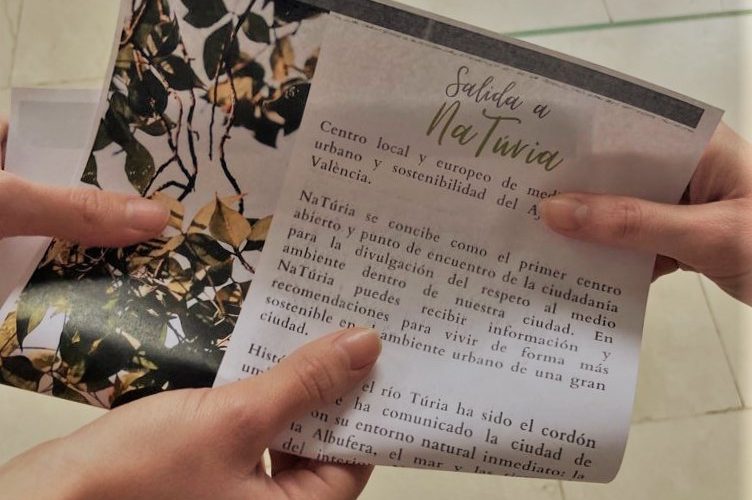 Salida a
NaTúria
Centro local y europeo de
urbano y sostenibilidad del
València.
NaTúria se concibe como el primer centro
abierto y punto de encuentro de la ciudadanía
para la divulgación del respeto al medio
ambiente dentro de nuestra ciudad. En
NaTúria puedes recibir información y
recomendaciones para vivir de forma más
sostenible en ambiente urbano de una gran
ciudad.
el río Túria ha sido el cordón
ha comunicado la ciudad de
su entorno natural inmediato: la
la Albufera, el mar y
del